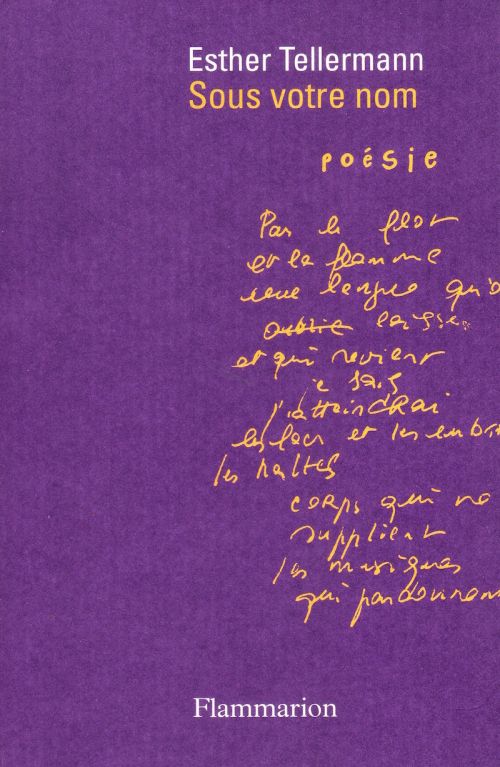 Esther Tellermann
Sous votre nom
poésie
Par le flot
et la flamme
une langue qu'o
oublie laisse
et qui revient
je sais
j'atteindrai
les lacs et les
les haltes
corps qui ne
supplient
les musiques
qui pardonnent
Flammarion